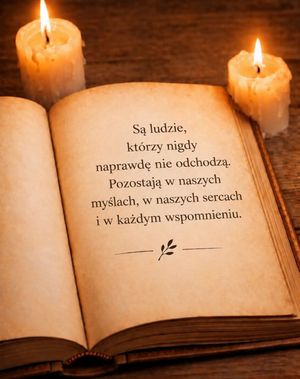 Są ludzie,
którzy nigdy
naprawdę nie odchodzą.
Pozostają w naszych
myślach, w naszych sercach
i w każdym wspomnieniu.